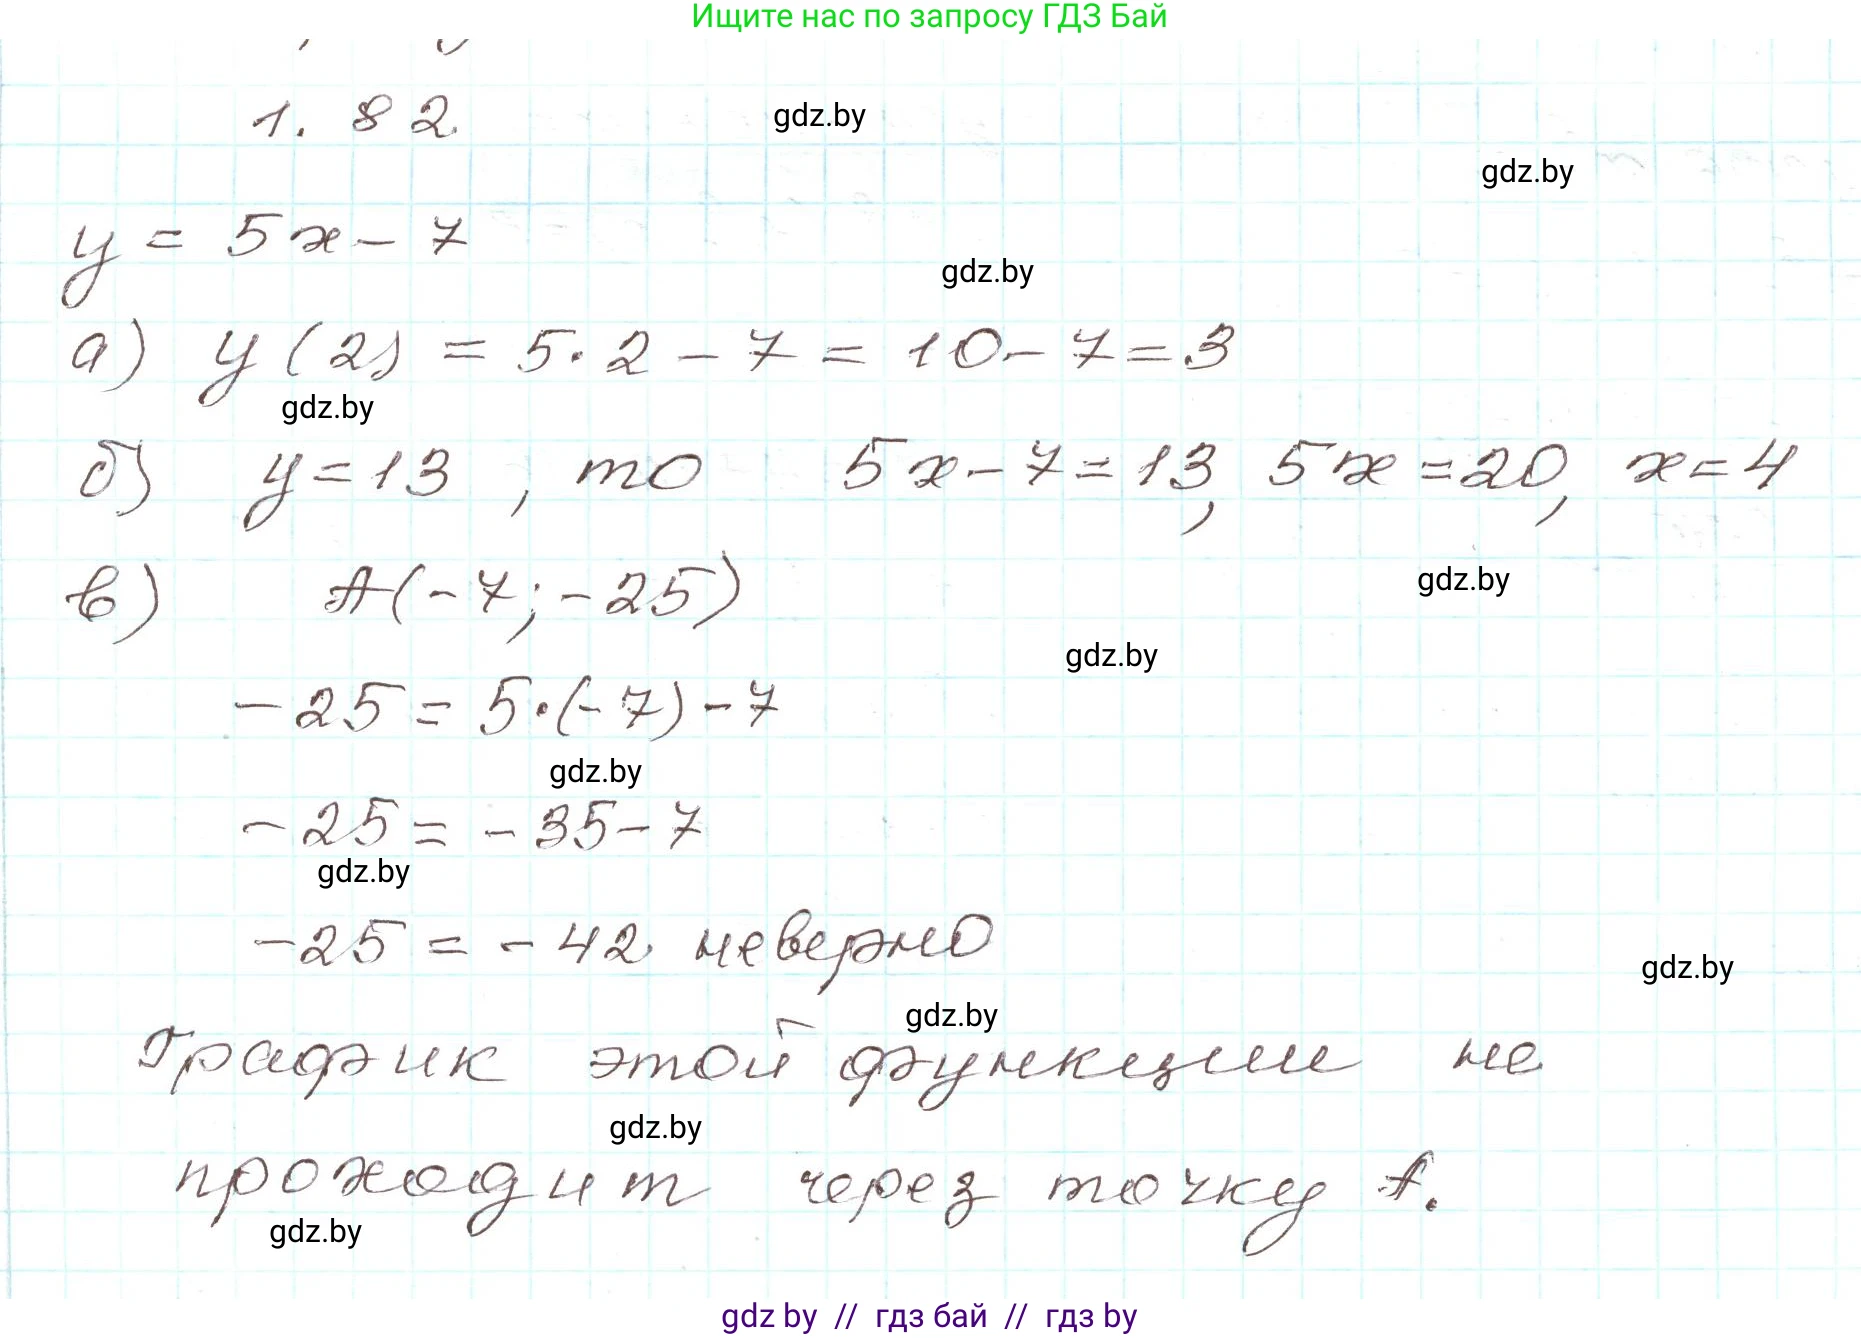 Ищите нас по запросу ГДЗ Бай
1.82
gdz.by
gdz.by
y = 5x - 7
gdz.by
а) y(2) = 5·2 - 7 = 10 - 7 = 3
gdz.by
б) y = 13, то 5x - 7 = 13, 5x = 20, x = 4
в) A(-7; -25)
gdz.by
gdz.by
-25 = 5·(-7) - 7
gdz.by
-25 = -35 - 7
gdz.by
-25 = -42 неверно
gdz.by
gdz.by
График этой функции не
gdz.by
проходит через точку A.
gdz.by
gdz by // гдз бай // гдз by